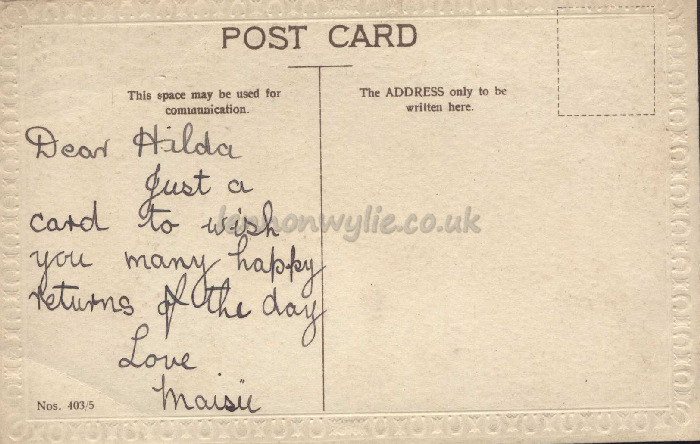 POST CARD
This space may be used for
communication.
The ADDRESS only to be
written here.
Dear Hilda
Just a
card to wish
you many happy
returns of the day
Love
Maisie
Nos. 403/5
lennonwylie.co.uk